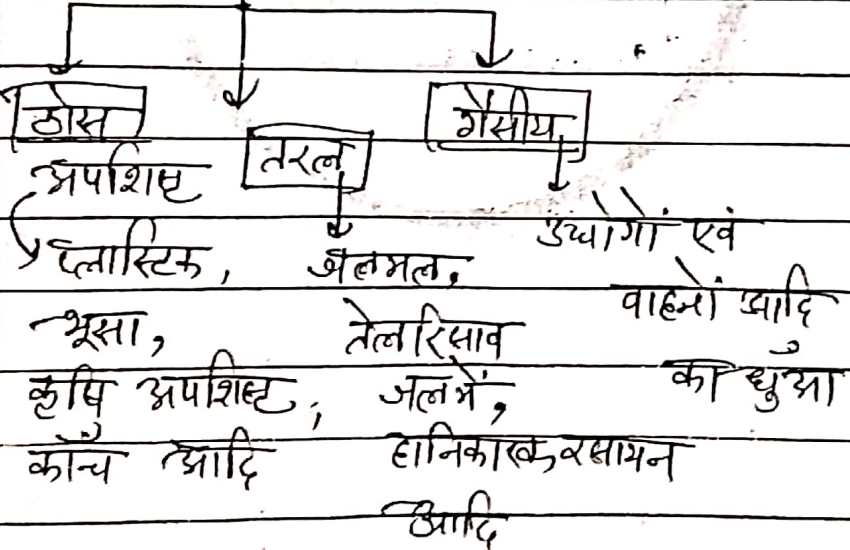 ठोस
अपशिष्ट
प्लास्टिक,
भूसा,
कृषि अपशिष्ट,
काँच आदि
तरल
जलमल,
तेल रिसाव
जल में,
हानिकारक रसायन
आदि
गैसीय
उद्योगों एवं
वाहनों आदि
का धुँआ